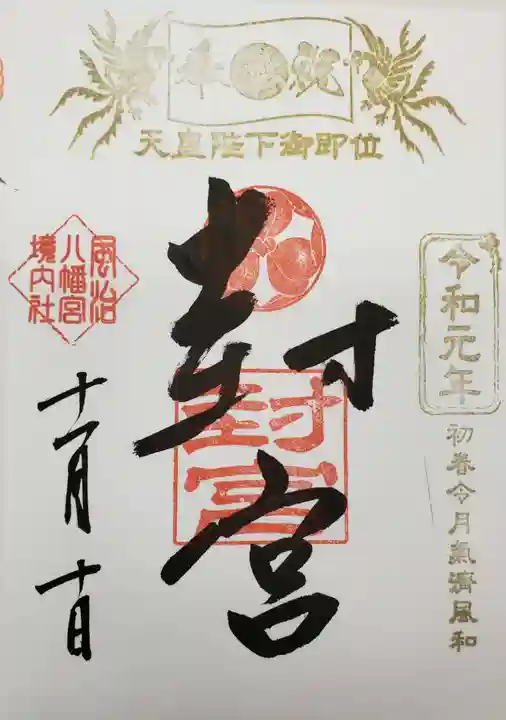 奉祝
天皇陛下御即位
令和元年
初春令月氣淸風和
封宮
封宮
風治
八幡宮
境内社
十一月十日